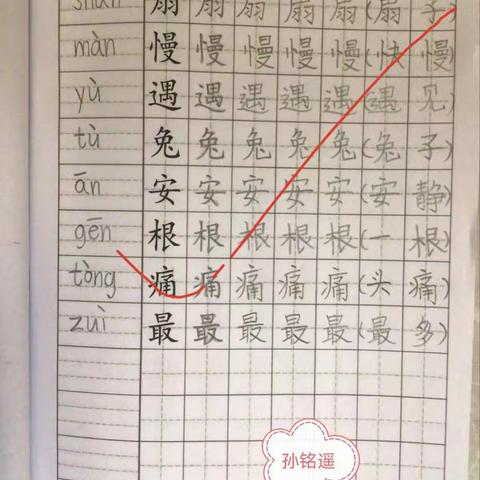 shàn 扇 扇 扇 扇 扇 (扇 子)
màn 慢 慢 慢 慢 慢 (快 慢)
yù 遇 遇 遇 遇 遇 (遇 见)
tù 兔 兔 兔 兔 兔 (兔 子)
ān 安 安 安 安 安 (安 静)
gēn 根 根 根 根 根 (一 根)
tòng 痛 痛 痛 痛 痛 (头 痛)
zuì 最 最 最 最 最 (最 多)
孙铭遥